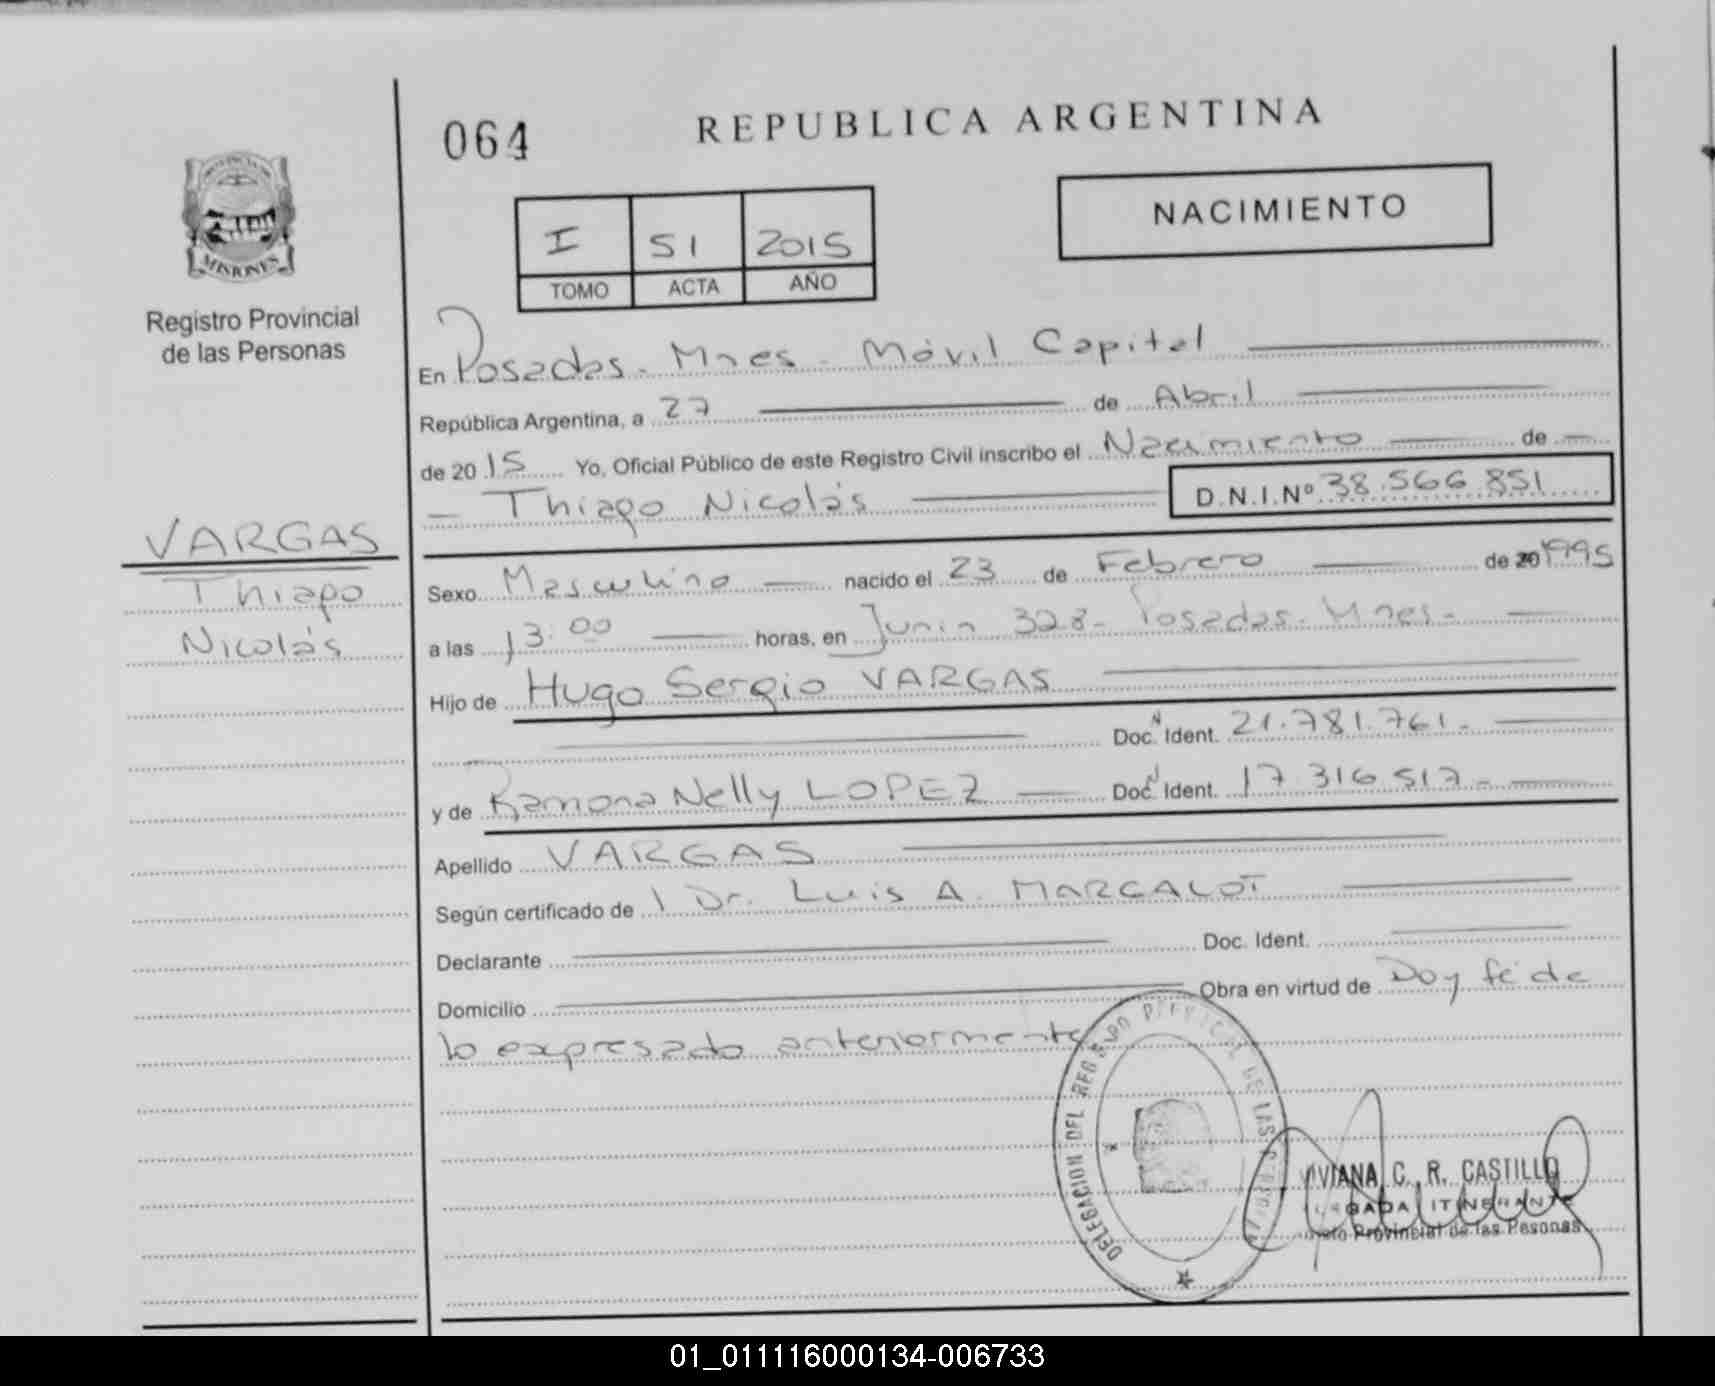 064
REPUBLICA ARGENTINA
PROVINCIA DE
MISIONES
Registro Provincial
de las Personas
I 51 2015
TOMO ACTA AÑO
NACIMIENTO
En Posadas - Mnes - Móvil Capital
República Argentina, a 27 de Abril
de 2015 Yo, Oficial Público de este Registro Civil inscribo el Nacimiento de
Thiago Nicolás D.N.I.Nº 38.566.851
VARGAS
Thiago
Nicolás
Sexo Masculino nacido el 23 de Febrero de 20 1995
a las 13:00 horas, en Junin 328 - Posadas - Mnes -
Hijo de Hugo Sergio VARGAS
Doc. N Ident. 21.781.761 -
y de Ramona Nelly LOPEZ Doc. N Ident. 17.316.517 -
Apellido VARGAS
Según certificado de Dr. Luis A. MARGALOT
Declarante Doc. Ident.
Domicilio Obra en virtud de Doy fé de
lo expresado anteriormente
DELEGACION DEL REGISTRO PROVINCIAL DE LAS PERSONAS
VIVIANA C. R. CASTILLO
ITINERANTE
Provincial de las Pesonas
01_011116000134-006733